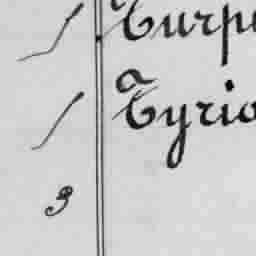 Turpi
Tyrio
3